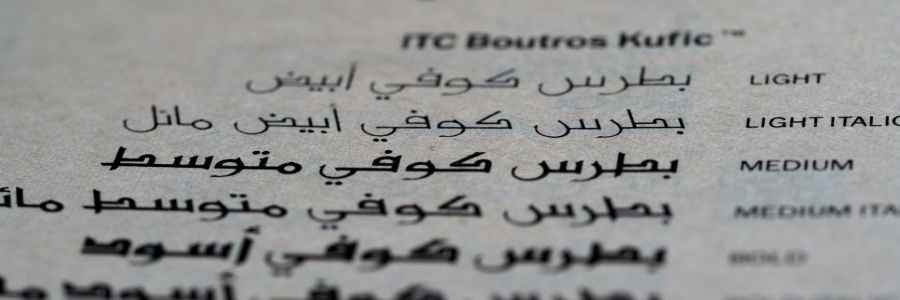 ITC Boutros Kufic™
بطرس كوفي أبيض LIGHT
بطرس كوفي أبيض مائل LIGHT ITALIC
بطرس كوفي متوسط MEDIUM
بطرس كوفي متوسط مائ MEDIUM ITA
بطرس كوفي أسود BOLD
بطرس كوفي أسود ما